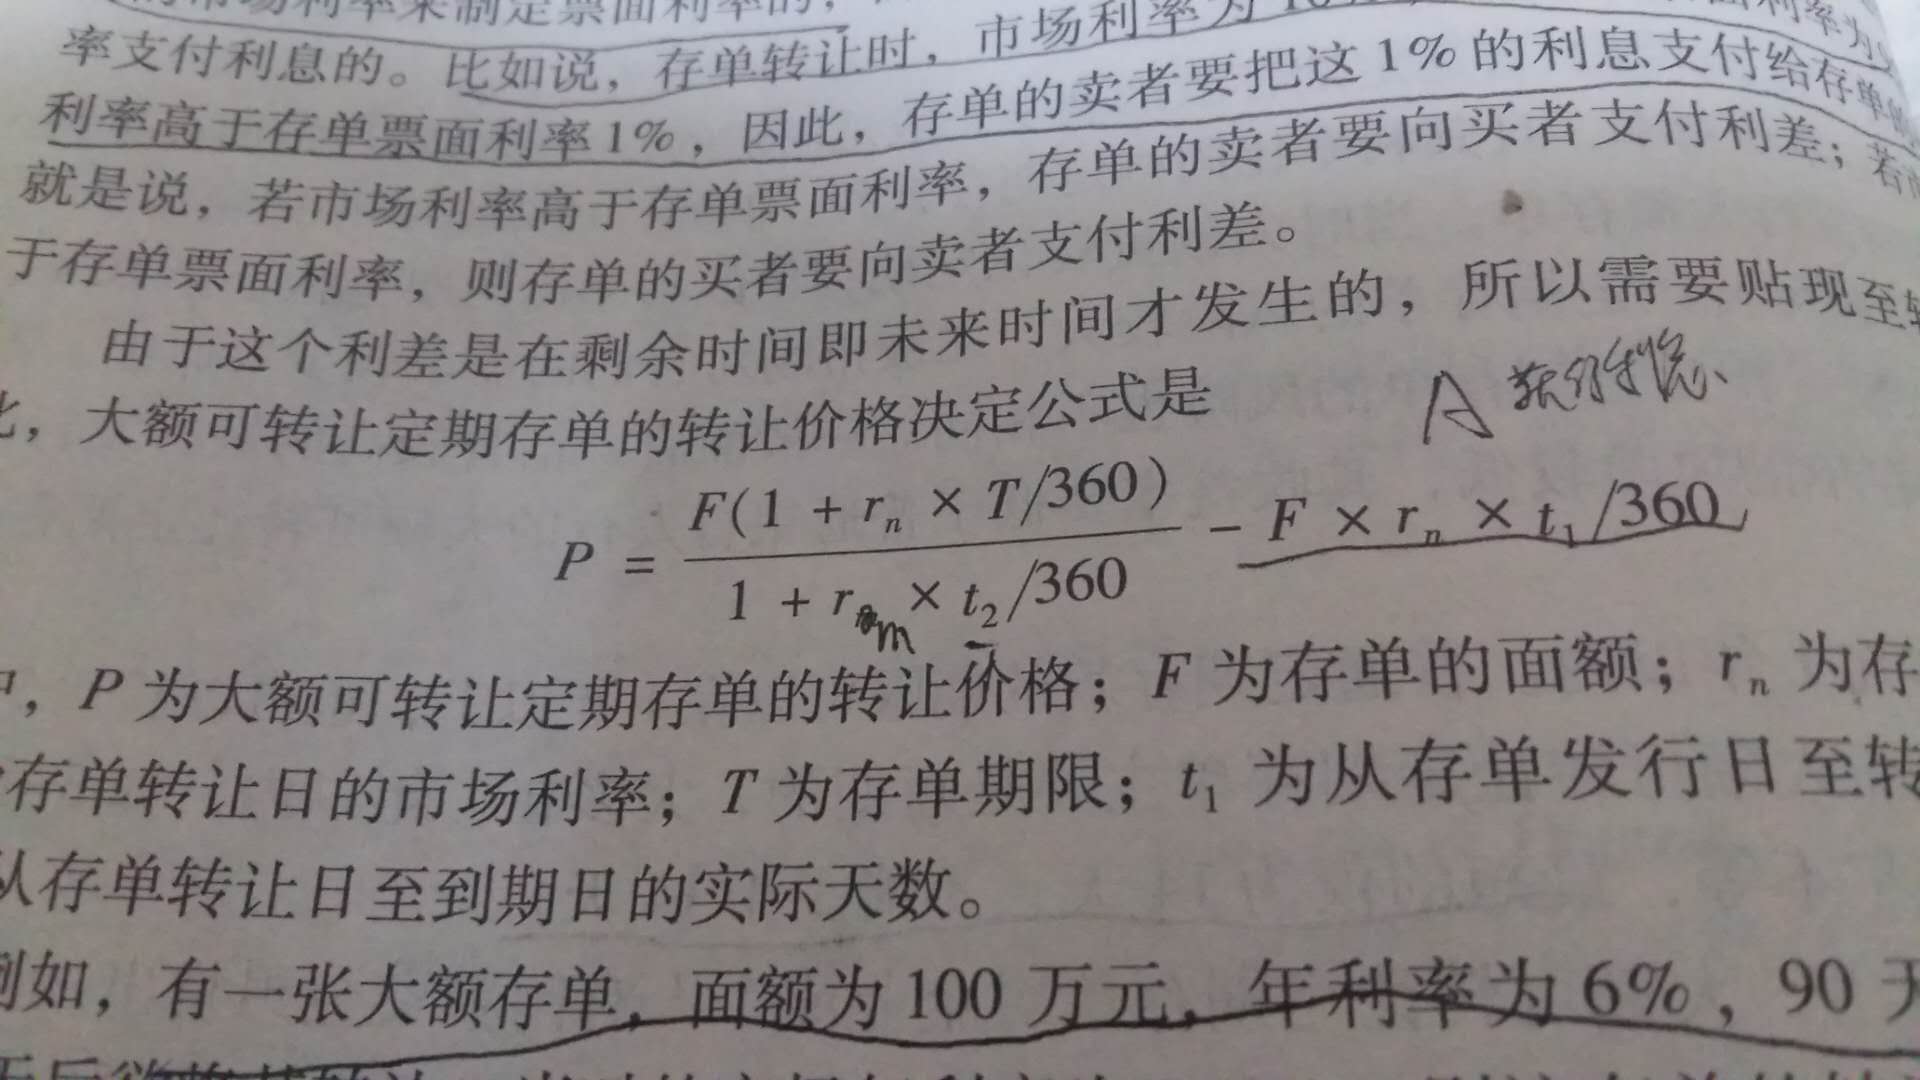 市场利率来制定票面利率的，
率支付利息的。比如说，存单转让时，市场利率为10 面利率为
利率高于存单票面利率1%，因此，存单的卖者要把这1%的利息支付给存单
就是说，若市场利率高于存单票面利率，存单的卖者要向买者支付利差；若
于存单票面利率，则存单的买者要向卖者支付利差。
由于这个利差是在剩余时间即未来时间才发生的，所以需要贴现至转
，大额可转让定期存单的转让价格决定公式是
A
P = F(1 + rₙ × T/360) / (1 + rₘ × t₂/360) − F × rₙ × t₁/360
，P 为大额可转让定期存单的转让价格；F 为存单的面额；rₙ 为存
存单转让日的市场利率；T 为存单期限；t₁ 为从存单发行日至转
从存单转让日至到期日的实际天数。
例如，有一张大额存单，面额为 100 万元，年利率为 6%，90 天